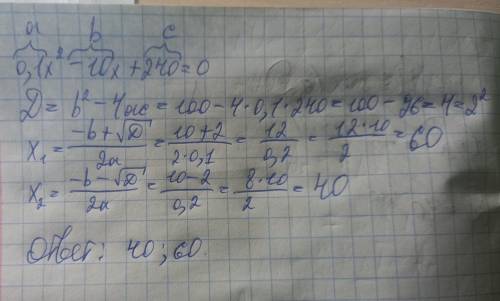 a b c
0,1x² - 10x + 240 = 0
D = b² - 4ac = 100 - 4·0,1·240 = 100 - 96 = 4 = 2²
x₁ = (-b + √D)/2a = (10 + 2)/(2·0,1) = 12/0,2 = (12·10)/2 = 60
x₂ = (-b - √D)/2a = (10 - 2)/0,2 = (8·10)/2 = 40
Ответ: 40; 60.